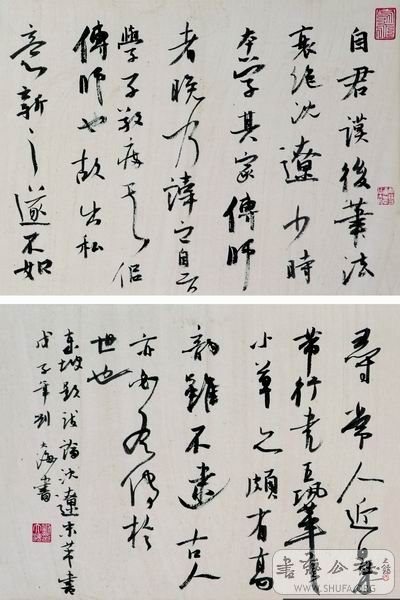 自君謨後筆法
衰絶沈遼少時
本學其家傳師
者晚乃諱之自云
學子敬病其侣
傳師也故出私
意新之遂不如
尋常人近日米
芾行書王鞏
小草亦頗有高
韻雖不逮古人
亦必有傳於
世也
東坡題跋論沈遼米芾書
戊子年 海書
WWW.SHUFA.ORG